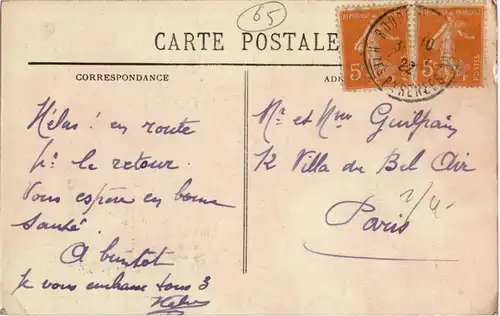 65
CARTE POSTALE
CORRESPONDANCE
5
5
POSTES
10
22
Hélas ! en route
pr le retour.
Vous espère en bonne
santé.
A bientôt
je vous embrasse tous 3
Mr et Mme Guilpain
12 Villa du Bel Air
Paris